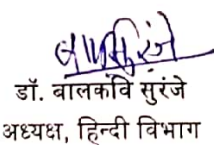 डॉ. बालकवि सुरंजे
अध्यक्ष, हिन्दी विभाग